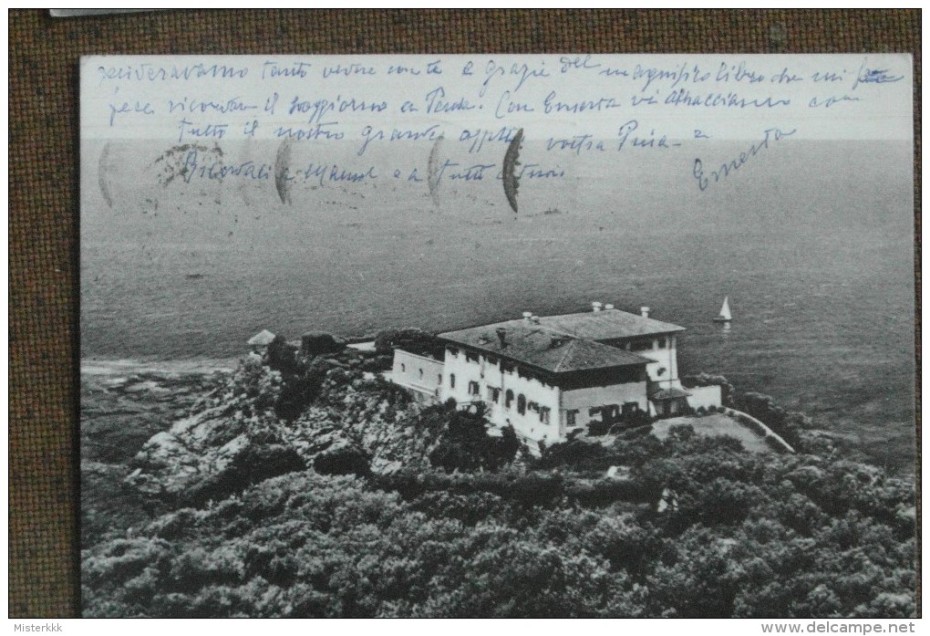 desideravamo tanto vedere con te e grazie del magnifico libro che mi
fece ricordare il soggiorno a. Con Ernesta vi abbracciamo con
tutto il nostro grande affetto vostra Pina
Ricordali a Manuel e a tutti
Ernesta
Misterkkk
www.delcampe.net